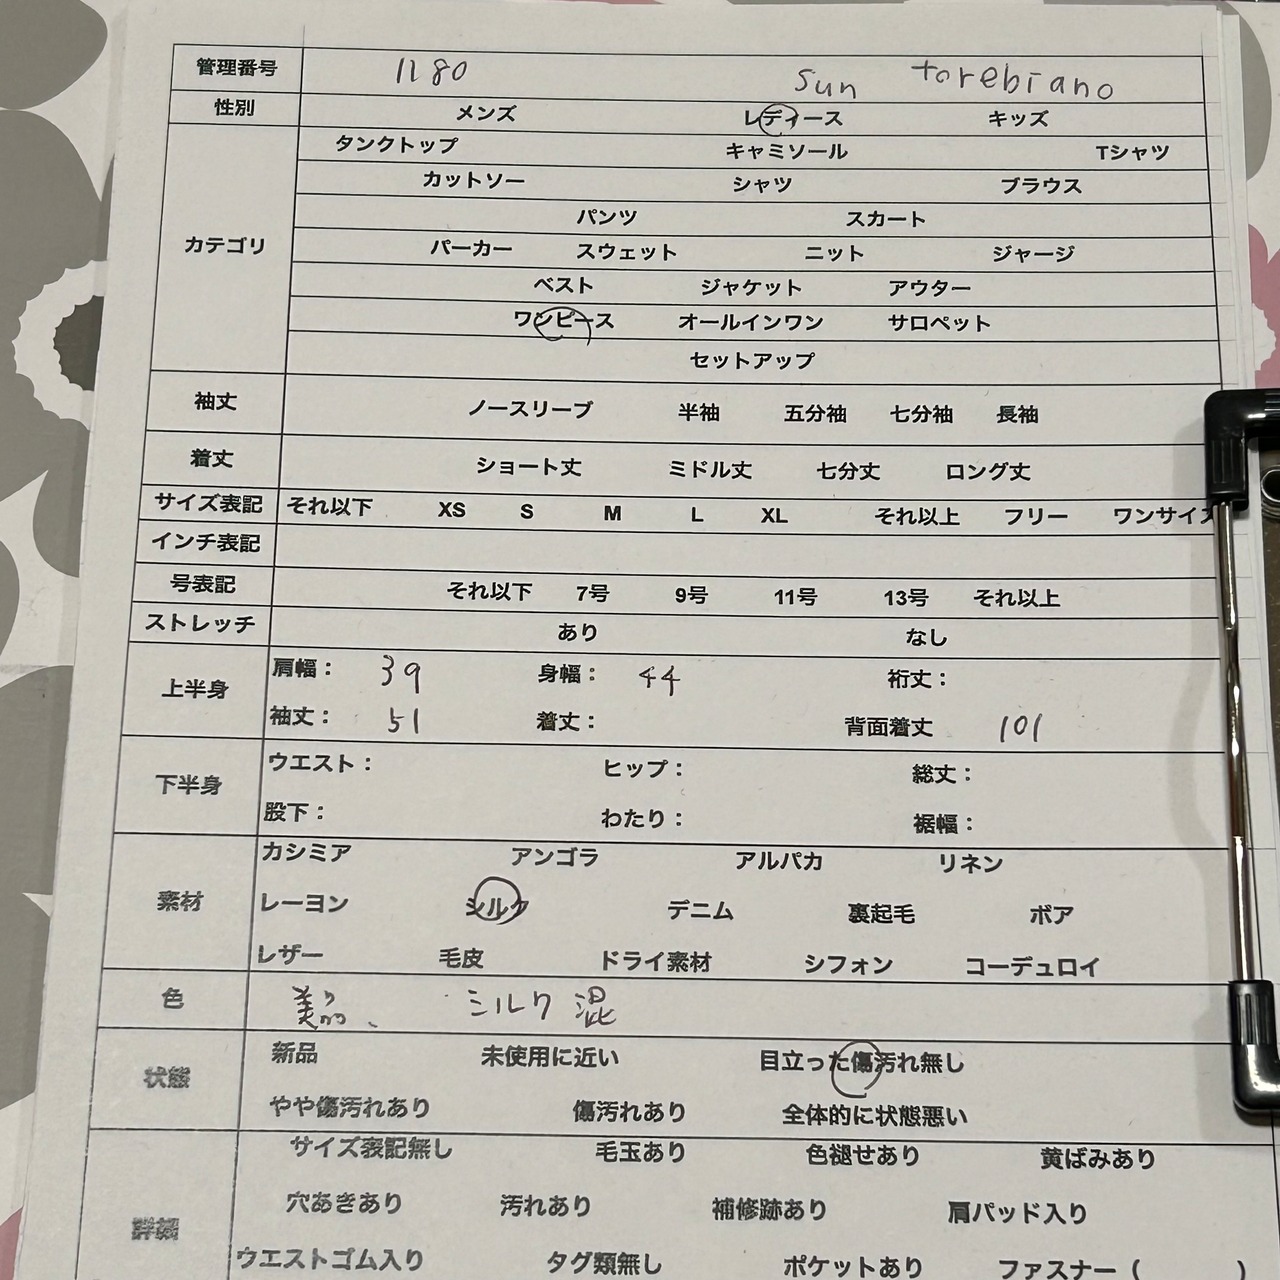 管理番号 1180 sun torebiano
性別 メンズ レディース キッズ
カテゴリ タンクトップ キャミソール Tシャツ
カットソー シャツ ブラウス
パンツ スカート
パーカー スウェット ニット ジャージ
ベスト ジャケット アウター
ワンピース オールインワン サロペット
セットアップ
袖丈 ノースリーブ 半袖 五分袖 七分袖 長袖
着丈 ショート丈 ミドル丈 七分丈 ロング丈
サイズ表記 それ以下 XS S M L XL それ以上 フリー ワンサイズ
インチ表記
号表記 それ以下 7号 9号 11号 13号 それ以上
ストレッチ あり なし
上半身 肩幅： 39 身幅： 44 裄丈：
袖丈： 51 着丈： 背面着丈 101
下半身 ウエスト： ヒップ： 総丈：
股下： わたり： 裾幅：
素材 カシミア アンゴラ アルパカ リネン
レーヨン シルク デニム 裏起毛 ボア
レザー 毛皮 ドライ素材 シフォン コーデュロイ
色 美品、 シルク 混
状態 新品 未使用に近い 目立った傷汚れ無し
やや傷汚れあり 傷汚れあり 全体的に状態悪い
詳細 サイズ表記無し 毛玉あり 色褪せあり 黄ばみあり
穴あきあり 汚れあり 補修跡あり 肩パッド入り
ウエストゴム入り タグ類無し ポケットあり ファスナー（ ）